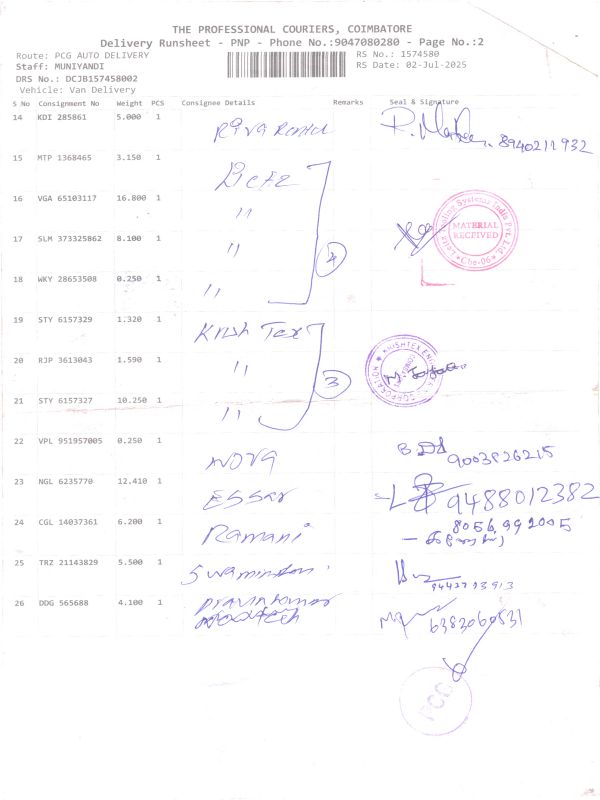 THE PROFESSIONAL COURIERS, COIMBATORE
Delivery Runsheet - PNP - Phone No.:9047080280 - Page No.:2
Route: PCG AUTO DELIVERY
Staff: MUNIYANDI
DRS No.: DCJB157458002
Vehicle: Van Delivery
RS No.: 1574580
RS Date: 02-Jul-2025
S No Consignment No Weight PCS Consignee Details Remarks Seal & Signature
14 KDI 285861 5.000 1 8940211932
15 MTP 1368465 3.150 1
16 VGA 65103117 16.800 1 "
17 SLM 373325862 8.100 1 "
18 WKY 28653508 0.250 1 "
4
Tooling Systems India Pvt. Ltd
MATERIAL
RECEIVED
Cbe-06
19 STY 6157329 1.320 1 Krish Tex
20 RJP 3613043 1.590 1 "
21 STY 6157327 10.250 1 "
3
22 VPL 951957005 0.250 1 NOVA 9003826215
23 NGL 6235770 12.410 1 Essar 9488012382
24 CGL 14037361 6.200 1 Ramani 8056992005
25 TRZ 21143829 5.500 1
26 DDG 565688 4.100 1 Pravinkumar 6382060531
PCG